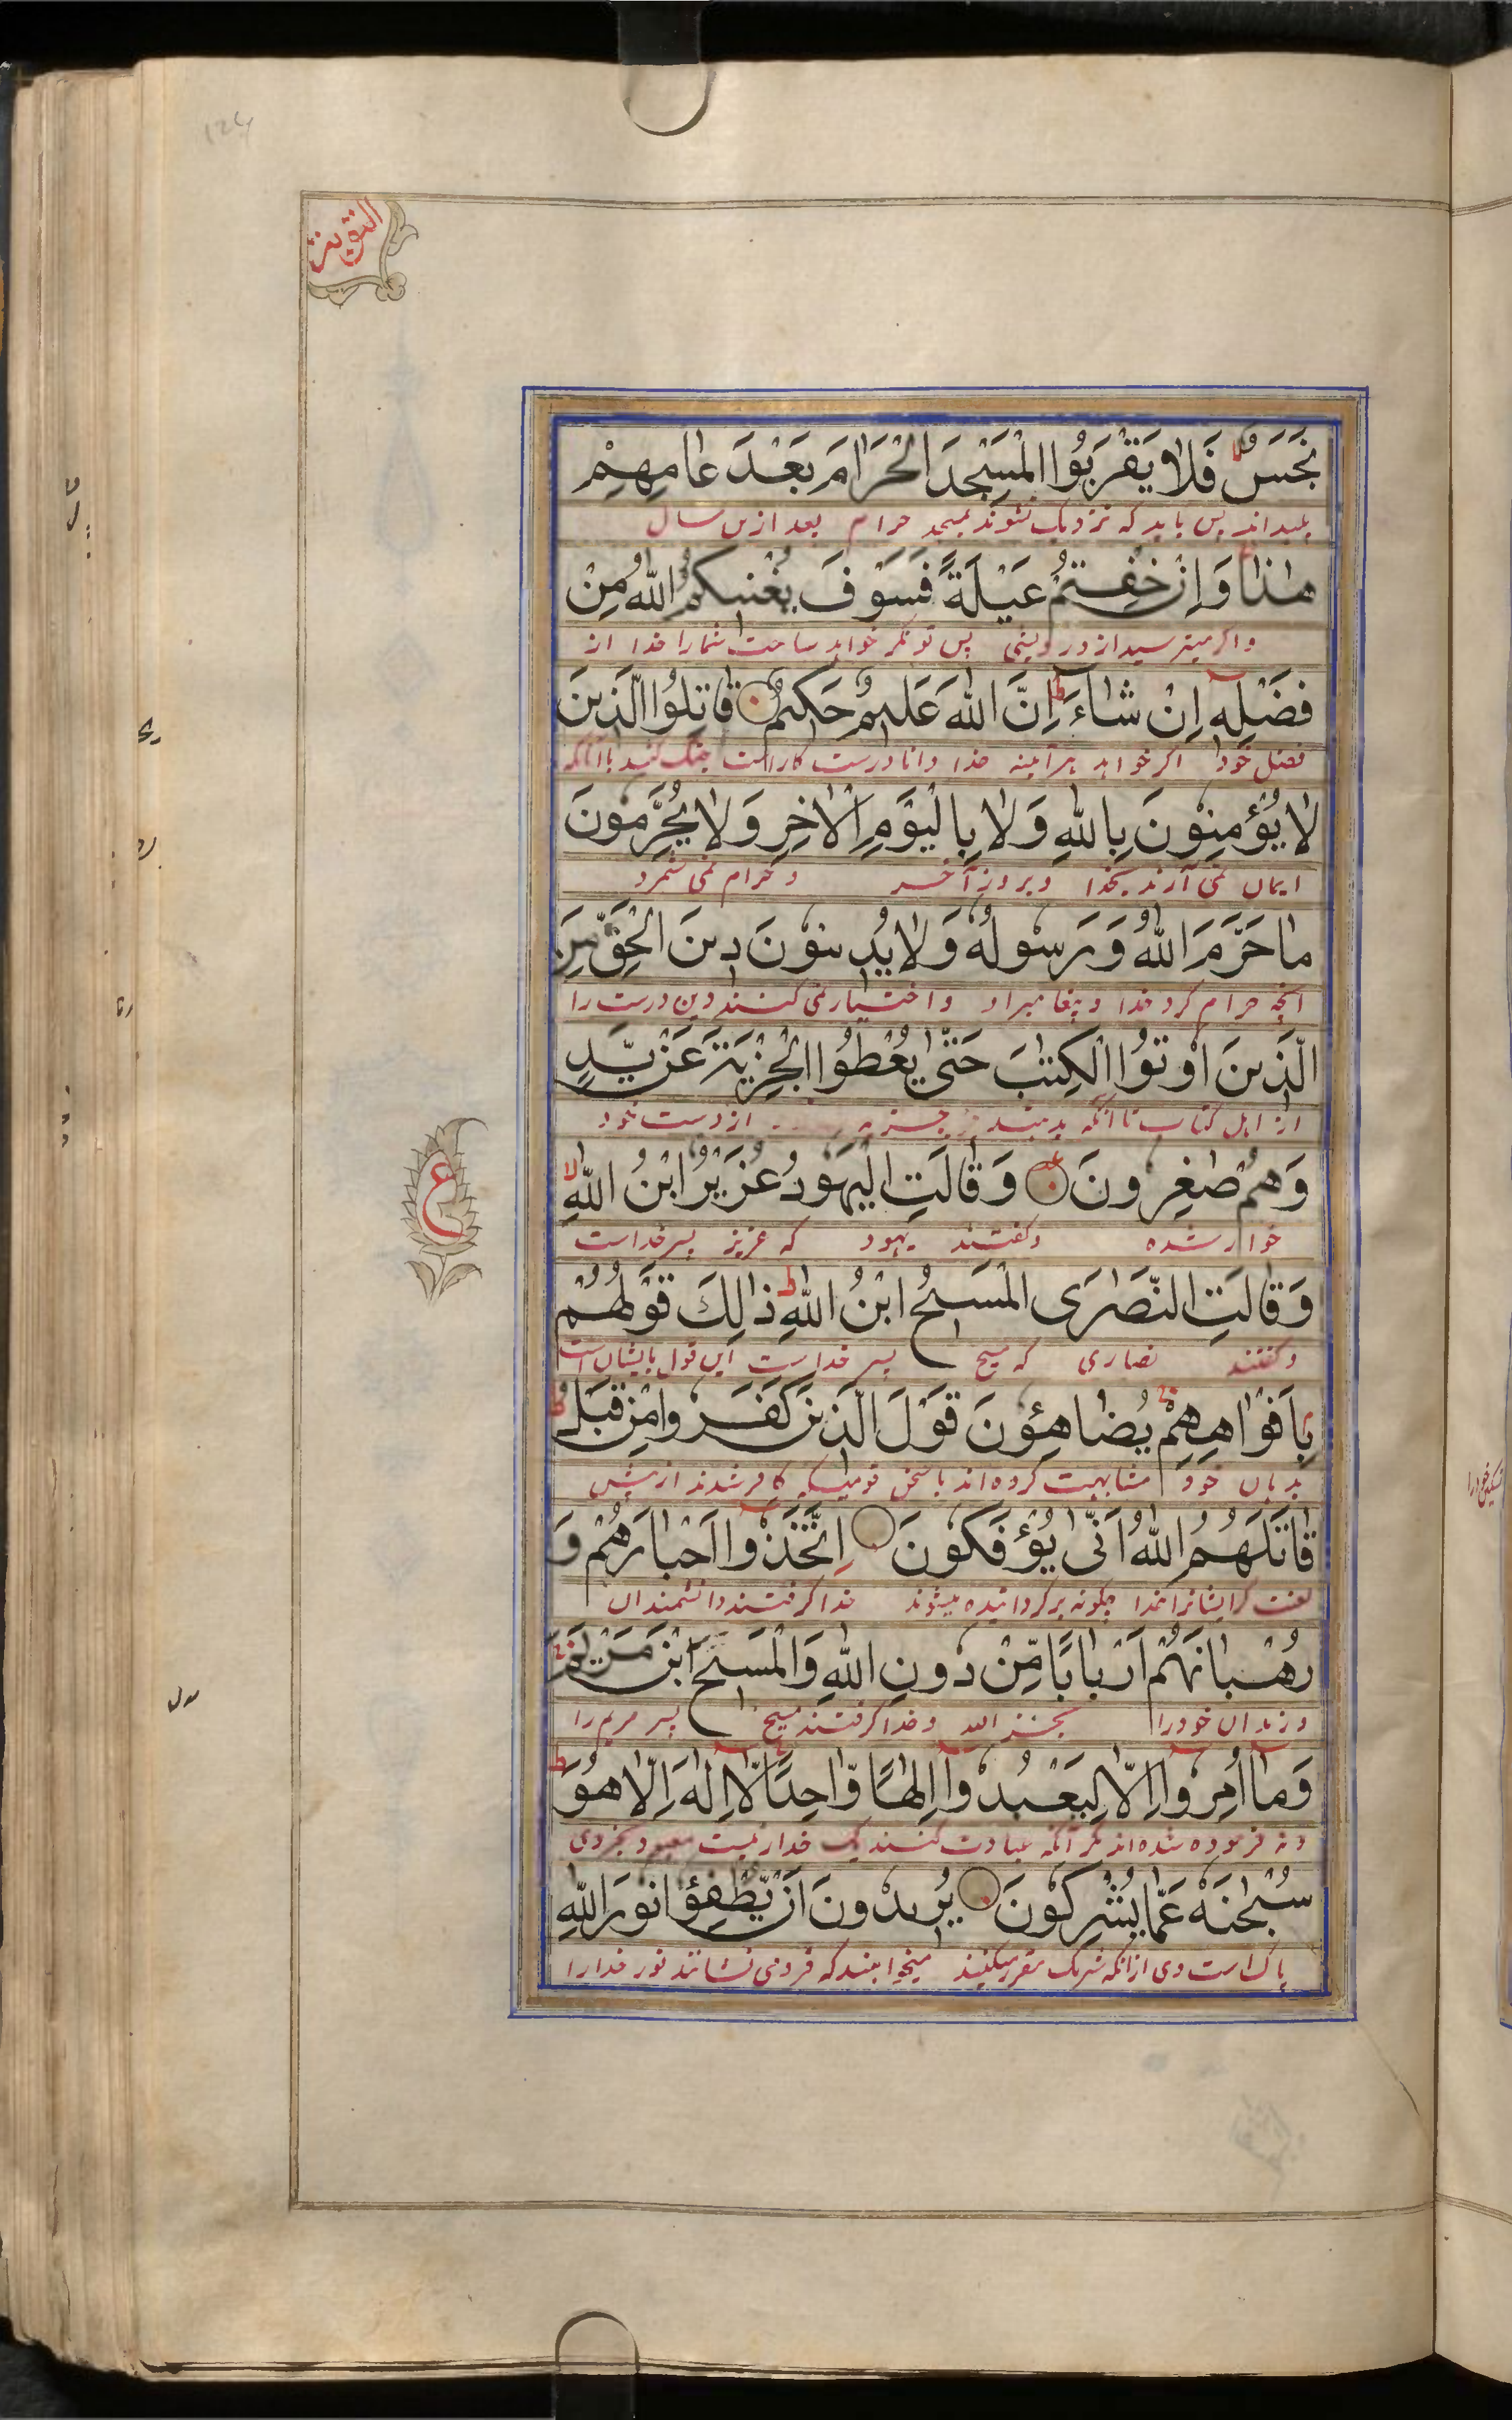 التوبة
نَجَسٌ فَلَا يَقْرَبُوا الْمَسْجِدَ الْحَرَامَ بَعْدَ عَامِهِمْ
پلیداند پس باید که نزدیک نشوند بمسجد حرام بعد ازین سال
هٰذَا وَاِنْ خِفْتُمْ عَيْلَةً فَسَوْفَ يُغْنِيكُمُ اللّٰهُ مِنْ
واگر میترسید از درویشی پس تونگر خواهد ساخت شمارا خدا از
فَضْلِهٖ اِنْ شَاءَ اِنَّ اللّٰهَ عَلِيمٌ حَكِيمٌ قَاتِلُوا الَّذِينَ
فضل خود اگر خواهد هرآئینه خدا دانا درست کاراست جنگ کنید باآنانکه
لَا يُؤْمِنُونَ بِاللّٰهِ وَلَا بِالْيَوْمِ الْاٰخِرِ وَلَا يُحَرِّمُونَ
ایمان نمی آرند بخدا وبروز آخر وحرام نمی شمرد
مَا حَرَّمَ اللّٰهُ وَرَسُولُهٗ وَلَا يَدِينُونَ دِينَ الْحَقِّ مِنَ
آنچه حرام کرد خدا وپیغامبر او واختیار نمی کنند دین درست را
الَّذِينَ اُوتُوا الْكِتٰبَ حَتّٰى يُعْطُوا الْجِزْيَةَ عَنْ يَّدٍ
از اهل کتاب تاآنکه بدهند جزیه از دست خود
وَهُمْ صٰغِرُونَ وَقَالَتِ الْيَهُودُ عُزَيْرُ ابْنُ اللّٰهِ
خوار شده وگفتند یهود که عزیز پسر خداست
وَقَالَتِ النَّصٰرَى الْمَسِيحُ ابْنُ اللّٰهِ ذٰلِكَ قَوْلُهُمْ
وگفتند نصاری که مسیح پسر خداست این قول بایشان است
بِاَفْوَاهِهِمْ يُضَاهِؤُنَ قَوْلَ الَّذِينَ كَفَرُوا مِنْ قَبْلُ
بدهان خود مشابهت کرده اند باسخن قومیکه کافر شدند از پیش
قَاتَلَهُمُ اللّٰهُ اَنّٰى يُؤْفَكُونَ اِتَّخَذُوا اَحْبَارَهُمْ وَ
لعنت کرد ایشانرا خدا چگونه برگردانیده میشوند خدا گرفتند دانشمندان
رُهْبَانَهُمْ اَرْبَابًا مِّنْ دُونِ اللّٰهِ وَالْمَسِيحَ ابْنَ مَرْيَمَ
وزهدان خودرا بجز الله وخدا گرفتند مسیح پسر مریم را
وَمَا اُمِرُوا اِلَّا لِيَعْبُدُوا اِلٰهًا وَّاحِدًا لَا اِلٰهَ اِلَّا هُوَ
ونه فرموده شده اند مگر آنکه عبادت کنند یک خدارا نیست معبود بجز وی
سُبْحٰنَهٗ عَمَّا يُشْرِكُونَ يُرِيدُونَ اَنْ يُّطْفِؤُا نُورَ اللّٰهِ
پاک است وی از آنکه شریک مقرر میکنند میخواهند که فرونشانند نور خدارا
ع